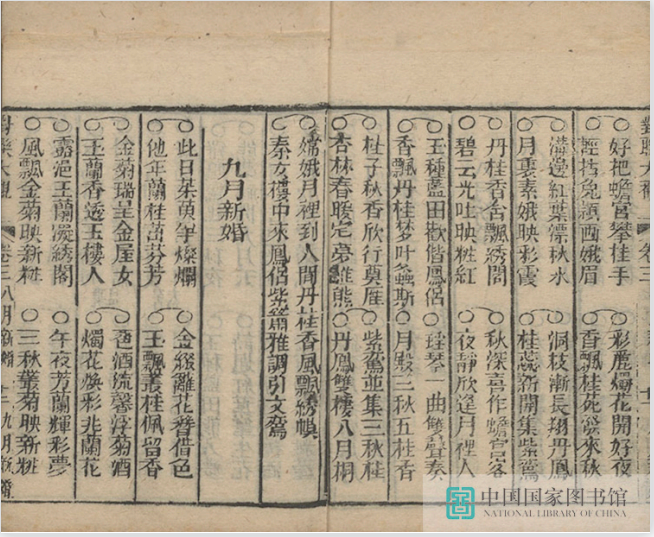 對聯大觀 卷三
好把蟾宮攀桂手 花開好夜
兔穎画娥眉 香飄桂苑來秋
溝邊紅葉漂秋水 枝漸長翔丹鳳
月裏素娥映彩霞 桂蕊新開集紫鸞
丹桂香舍飄綉閣 秋深喜作蟾宮客
碧云光吐映粧紅 夜靜欣逢月裡人
玉種藍田歡偕鳳侶 瑤琴一曲雙聲奏
香飄丹桂梦叶螽斯 月殿三秋五桂香
桂子秋香欣行奠雁 紫鴛並集三秋桂
杏林春暖定夢維熊 丹鳳雙棲八月桐
嫦娥月裡到人間丹桂香風飄綉幙
秦女樓中來鳳侶紫簫雅調引文鴛
九月新婚
此日茱萸年燦爛 金綴離花香借色
他年蘭桂茁芬芳 玉飄叢桂佩留香
金菊瑞呈金屋女 巹酒流馨浮菊酒
玉蘭香透玉樓人 燭花煥彩兆蘭花
露浥玉蘭凝綉閣 午夜芳蘭輝彩夢
風飄金菊映新粧 三秋叢菊映新粧
對聯大觀 卷三 八月新婚 十二 九月新婚
中国国家图书馆
NATIONAL LIBRARY OF CHINA